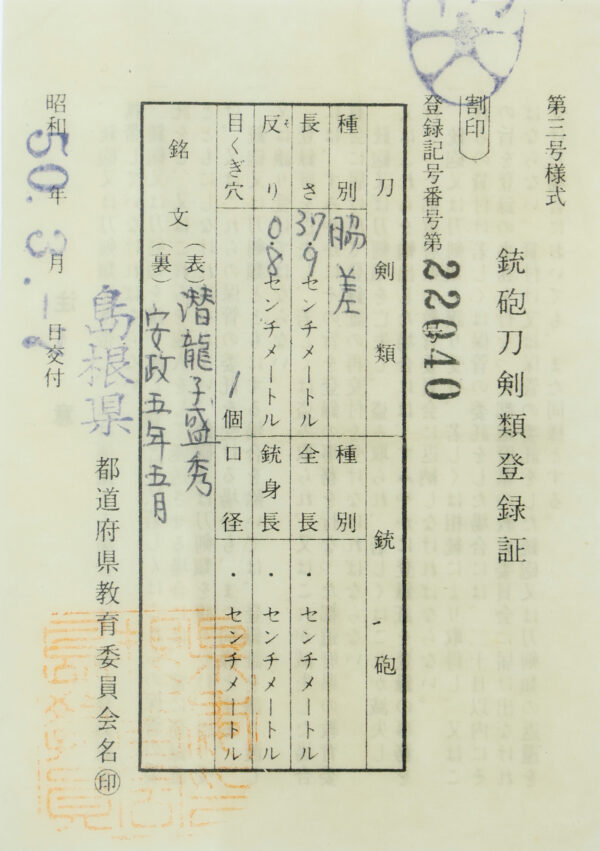 第三号様式
銃砲刀剣類登録証
割印
登録記号番号第 22040 号
刀剣類
種別 脇差
長さ 37.9センチメートル
反り 0.8センチメートル
目くぎ穴 1個
銃砲
種別
全長 . センチメートル
銃身長 . センチメートル
口径 . センチメートル
銘文
(表) 潜龍子盛秀
(裏) 安政五年五月
昭和 50年 3.月 日交付
島根県
都道府県教育委員会名 印